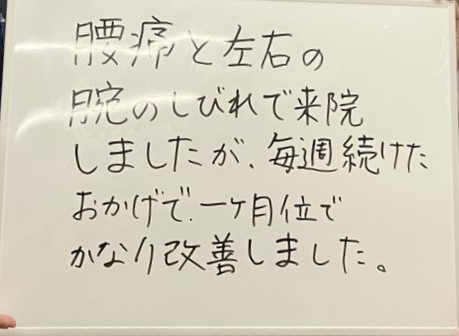 腰痛と左右の
腕のしびれで来院
しましたが、毎週続けた
おかげで、一ヶ月位で
かなり改善しました。